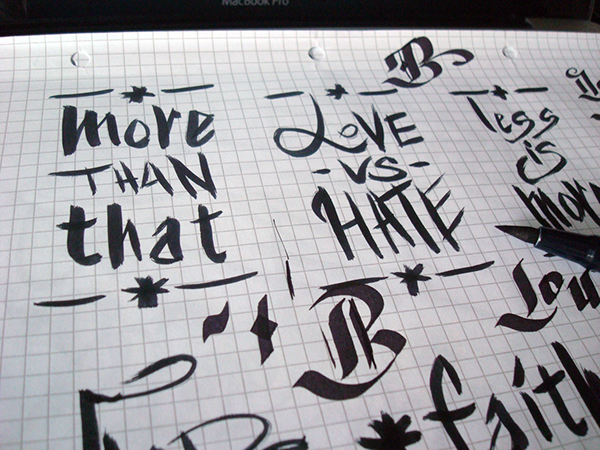 MacBook Pro
B
more
THAN
that
LOVE
-VS-
HATE
less
is
more
B
faith